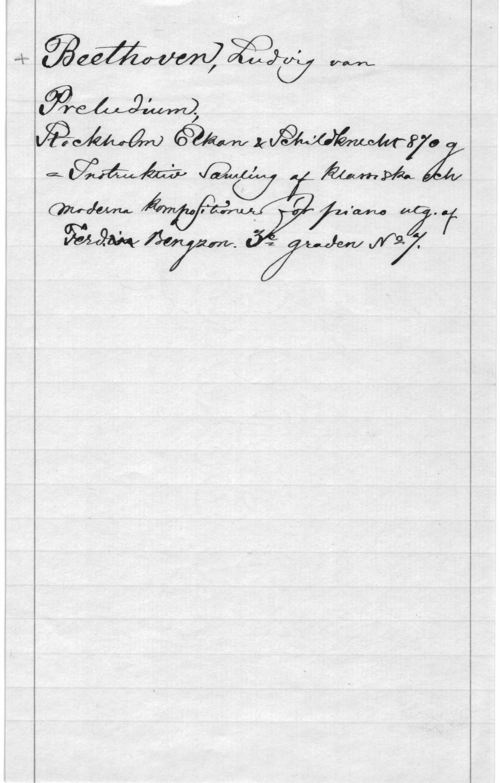 + Beethoven, Ludvig van
Preludium,
Stockholm Elkan & Schildknecht 870 g
= Instruktiv Samling af klassiska och
moderna kompositioner för piano utg. af
Ferd. Bengzon. 3e graden No 7.